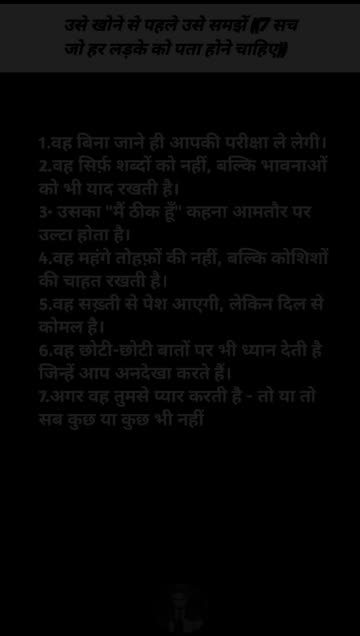 उसे खोने से पहले उसे समझें ((7 सच
जो हर लड़के को पता होने चाहिए))
1.वह बिना जाने ही आपकी परीक्षा ले लेगी।
2.वह सिर्फ़ शब्दों को नहीं, बल्कि भावनाओं
को भी याद रखती है।
3• उसका "मैं ठीक हूँ" कहना आमतौर पर
उल्टा होता है।
4.वह महंगे तोहफ़ों की नहीं, बल्कि कोशिशों
की चाहत रखती है।
5.वह सख़्ती से पेश आएगी, लेकिन दिल से
कोमल है।
6.वह छोटी-छोटी बातों पर भी ध्यान देती है
जिन्हें आप अनदेखा करते हैं।
7.अगर वह तुमसे प्यार करती है - तो या तो
सब कुछ या कुछ भी नहीं